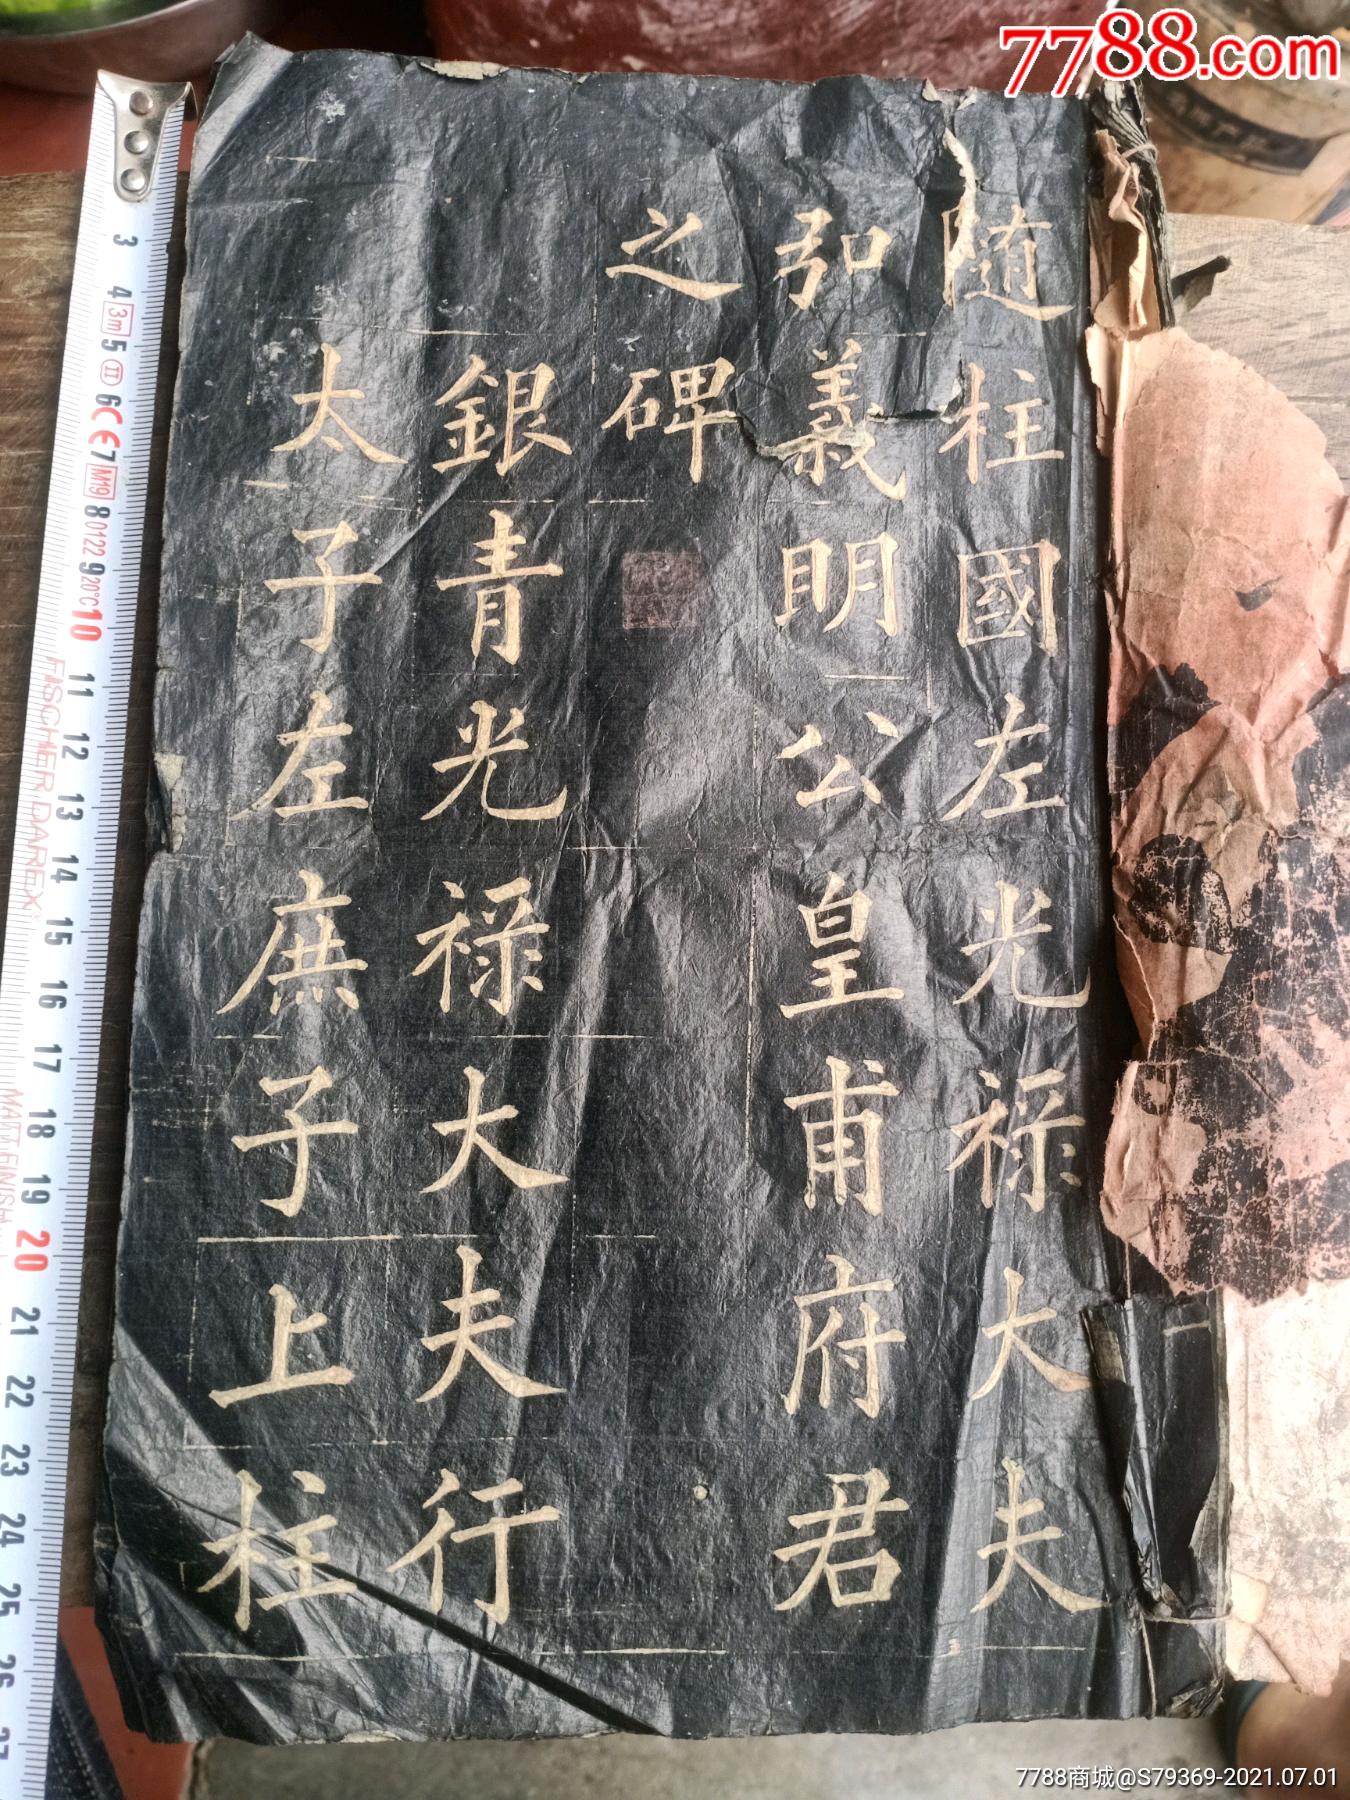 7788.com
随柱國左光禄大夫
弘義明公皇甫府君
之碑
銀青光禄大夫行
太子左庶子上柱
3 4 3m 5 II 6 CE 7 M19 8 0122 9 20°C 10 11 12 13 14 15 16 17 18 19 20 21 22 23 24 25 26
FISCHER DAREX
7788商城@S79369-2021.07.01